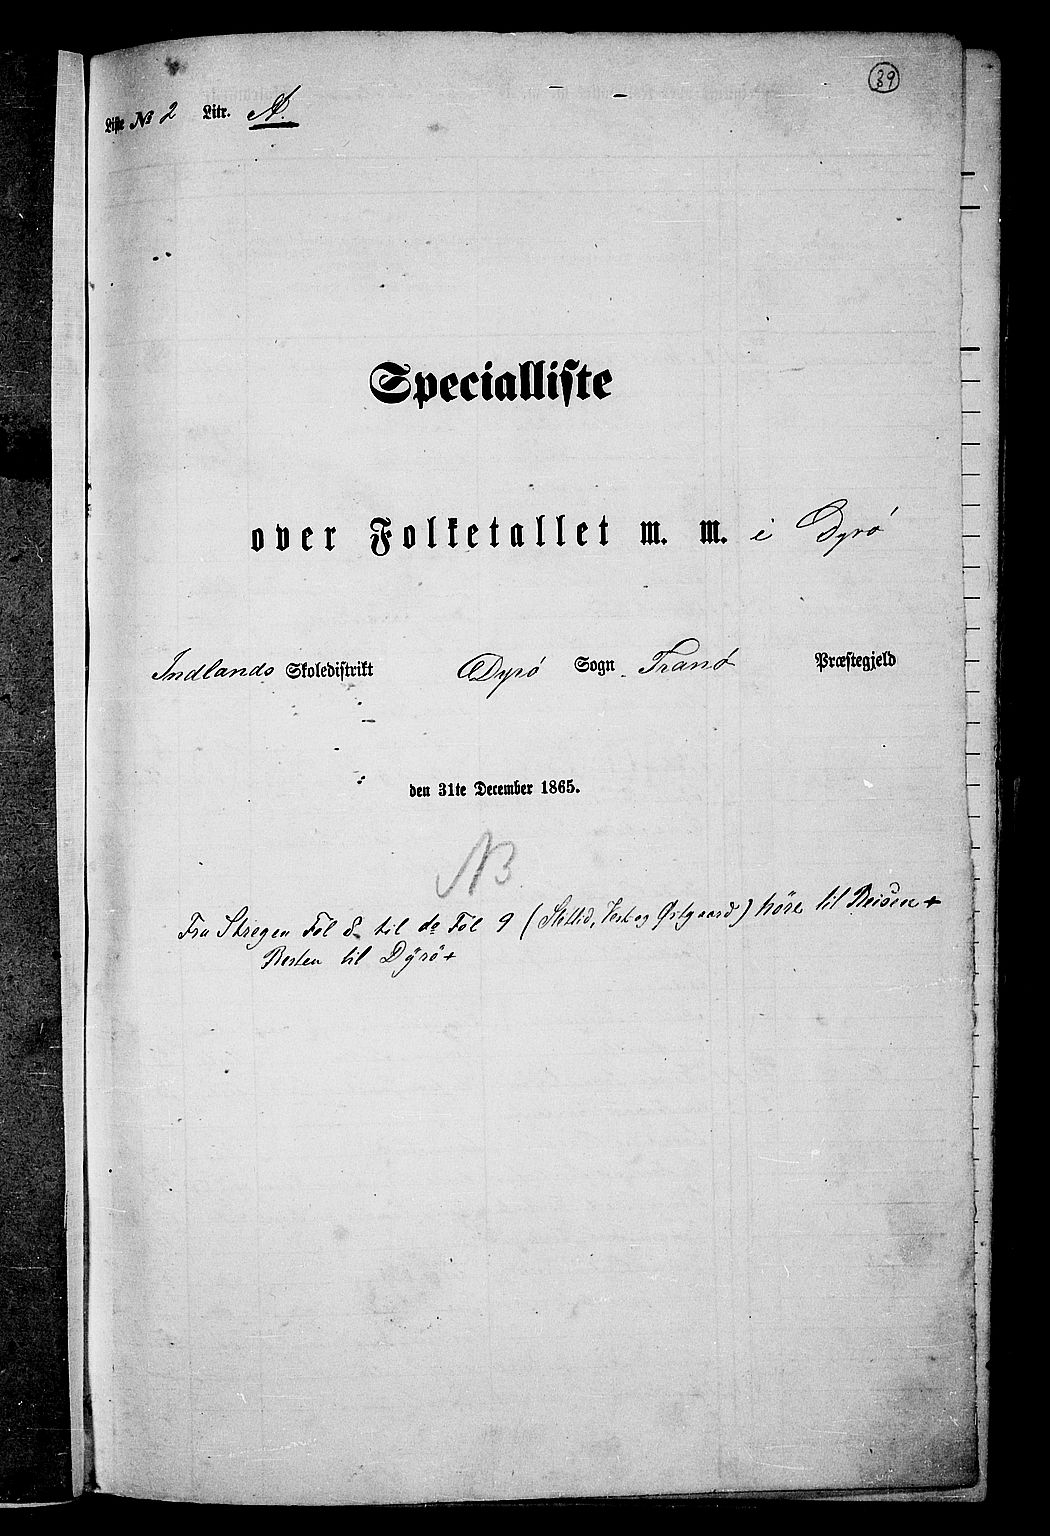 39
Liste № 2 Litr. A.
Specialliste
over Folketallet m. m. i Dyrö
Indlands Skoledistrikt Dyrö Sogn Tranö Præstegjeld
den 31te December 1865.
NB
Fra Stregen Fol 8 til do Fol 9 (Slettid, Vest og Östgaard) höre til Reisen +
Resten til Dyrö +